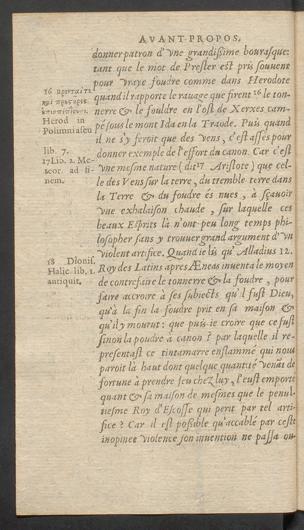 AVANT-PROPOS.
donner patron d'vne grandissime bourasque:
tant que le mot de Prester est pris souuent
pour vraye foudre comme dans Herodote
quand il rapporte le rauage que firent 16 le ton-
nerre & le fouldre en l'ost de Xerxes cam-
pé sous le mont Ida en la Troade. Puis quand
il ne s'y feroit que des vens, c'est assés pour
donner exemple de l'effort du canon. Car c'est
vne mesme nature (dit 17 Aristote) que cel-
le des Vens sur la terre, du tremble-terre dans
la Terre & du foudre és nues, à sçauoir
vne exhalaison chaude, sur laquelle ces
beaux Esprits là n'ont peu long temps phi-
losopher sans y trouuer grand argument d'vn
violent artifice. Quand ie lis qu'Alladius 12.
Roy des Latins apres Æneas inuenta le moyen
de contrefaire le tonnerre & la foudre, pour
faire accroire à ses subiects qu'il fust Dieu,
qu'à la fin la foudre prit en sa maison &
qu'il y mourut: que puis-ie croire que ce fust
sinon la poudre a canon? par laquelle il re-
presentast ce tintamarre enflammé qui nous
paroit là haut dont quelque quantité venãt de
fortune à prendre feu chez luy, l'eust emporté
quant & sa maison de mesmes que le penul-
tiesme Roy d'Escosse qui perit par tel arti-
fice? Car il est possible qu'accablé par ceste
inopinee violence son inuention ne passa ou-
16
Herod in
Polimniaseu
lib. 7.
17 Lio. 2. Me-
teor. ad fi-
nem.
18 Dionis.
Halic. lib. 1.
antiquit.